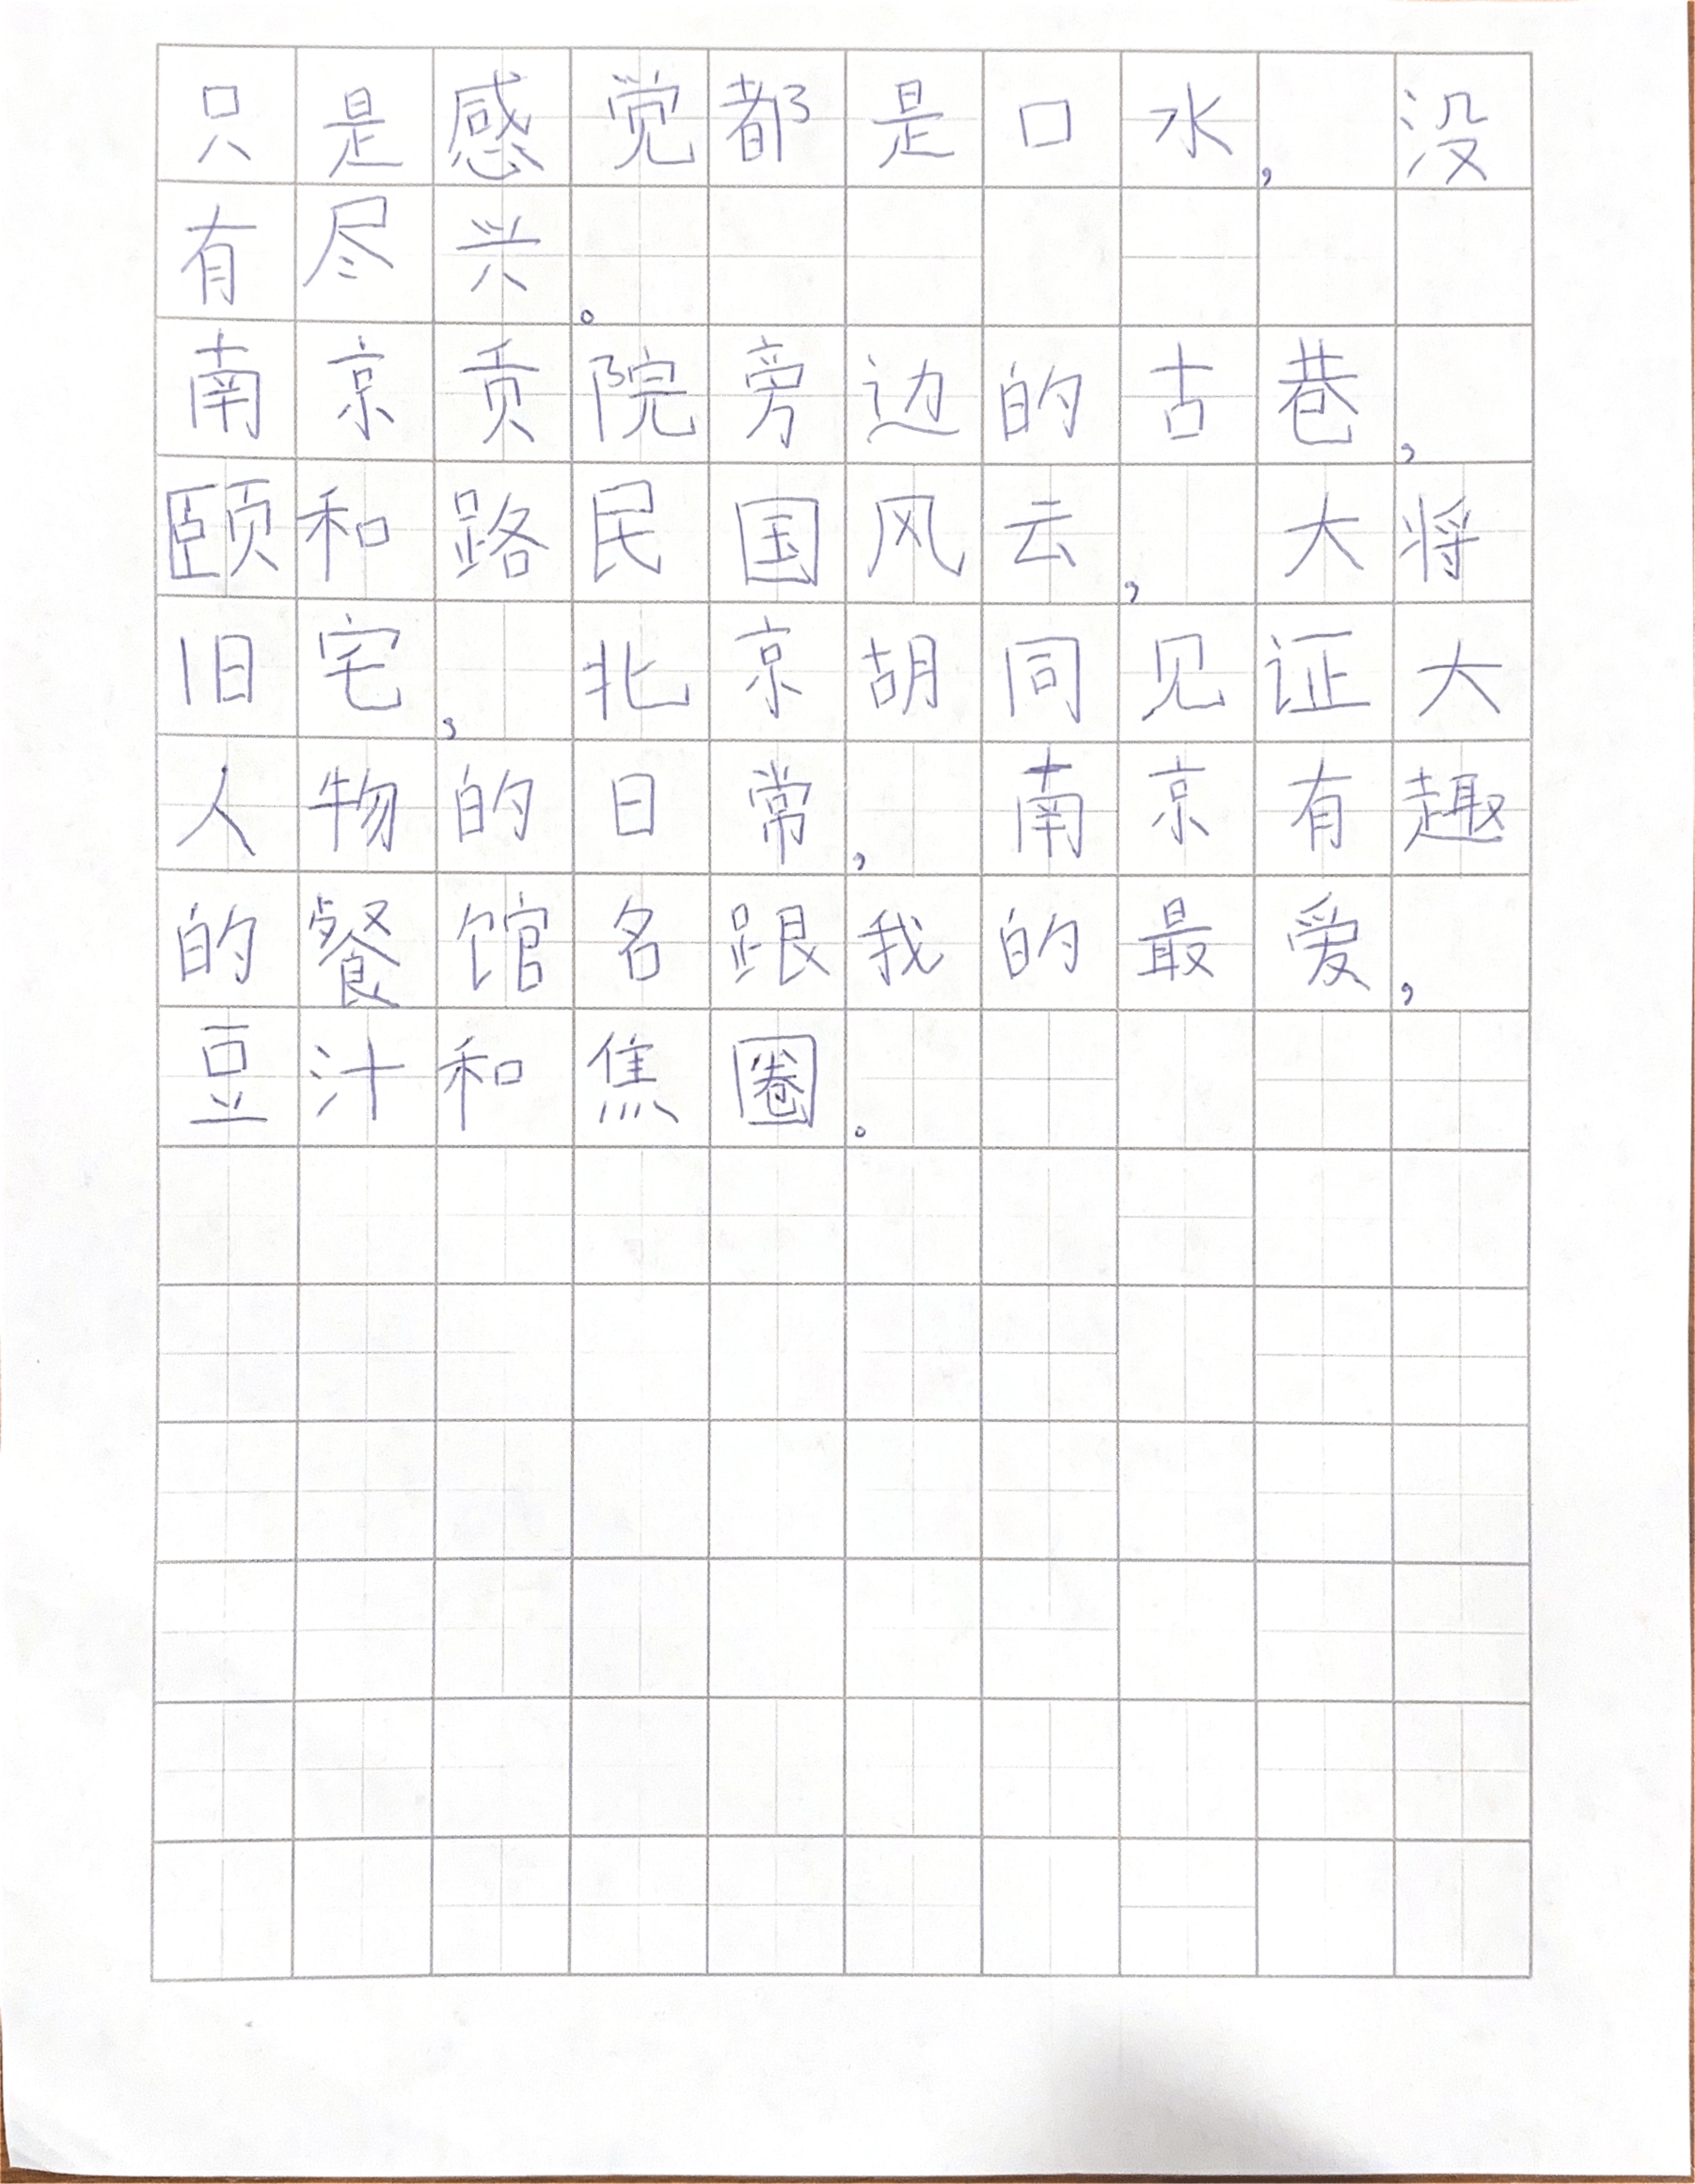 只是感觉都是口水,没
有尽兴。
南京贡院旁边的古巷,
颐和路民国风云,大将
旧宅,北京胡同见证大
人物的日常,南京有趣
的餐馆名跟我的最爱,
豆汁和焦圈。